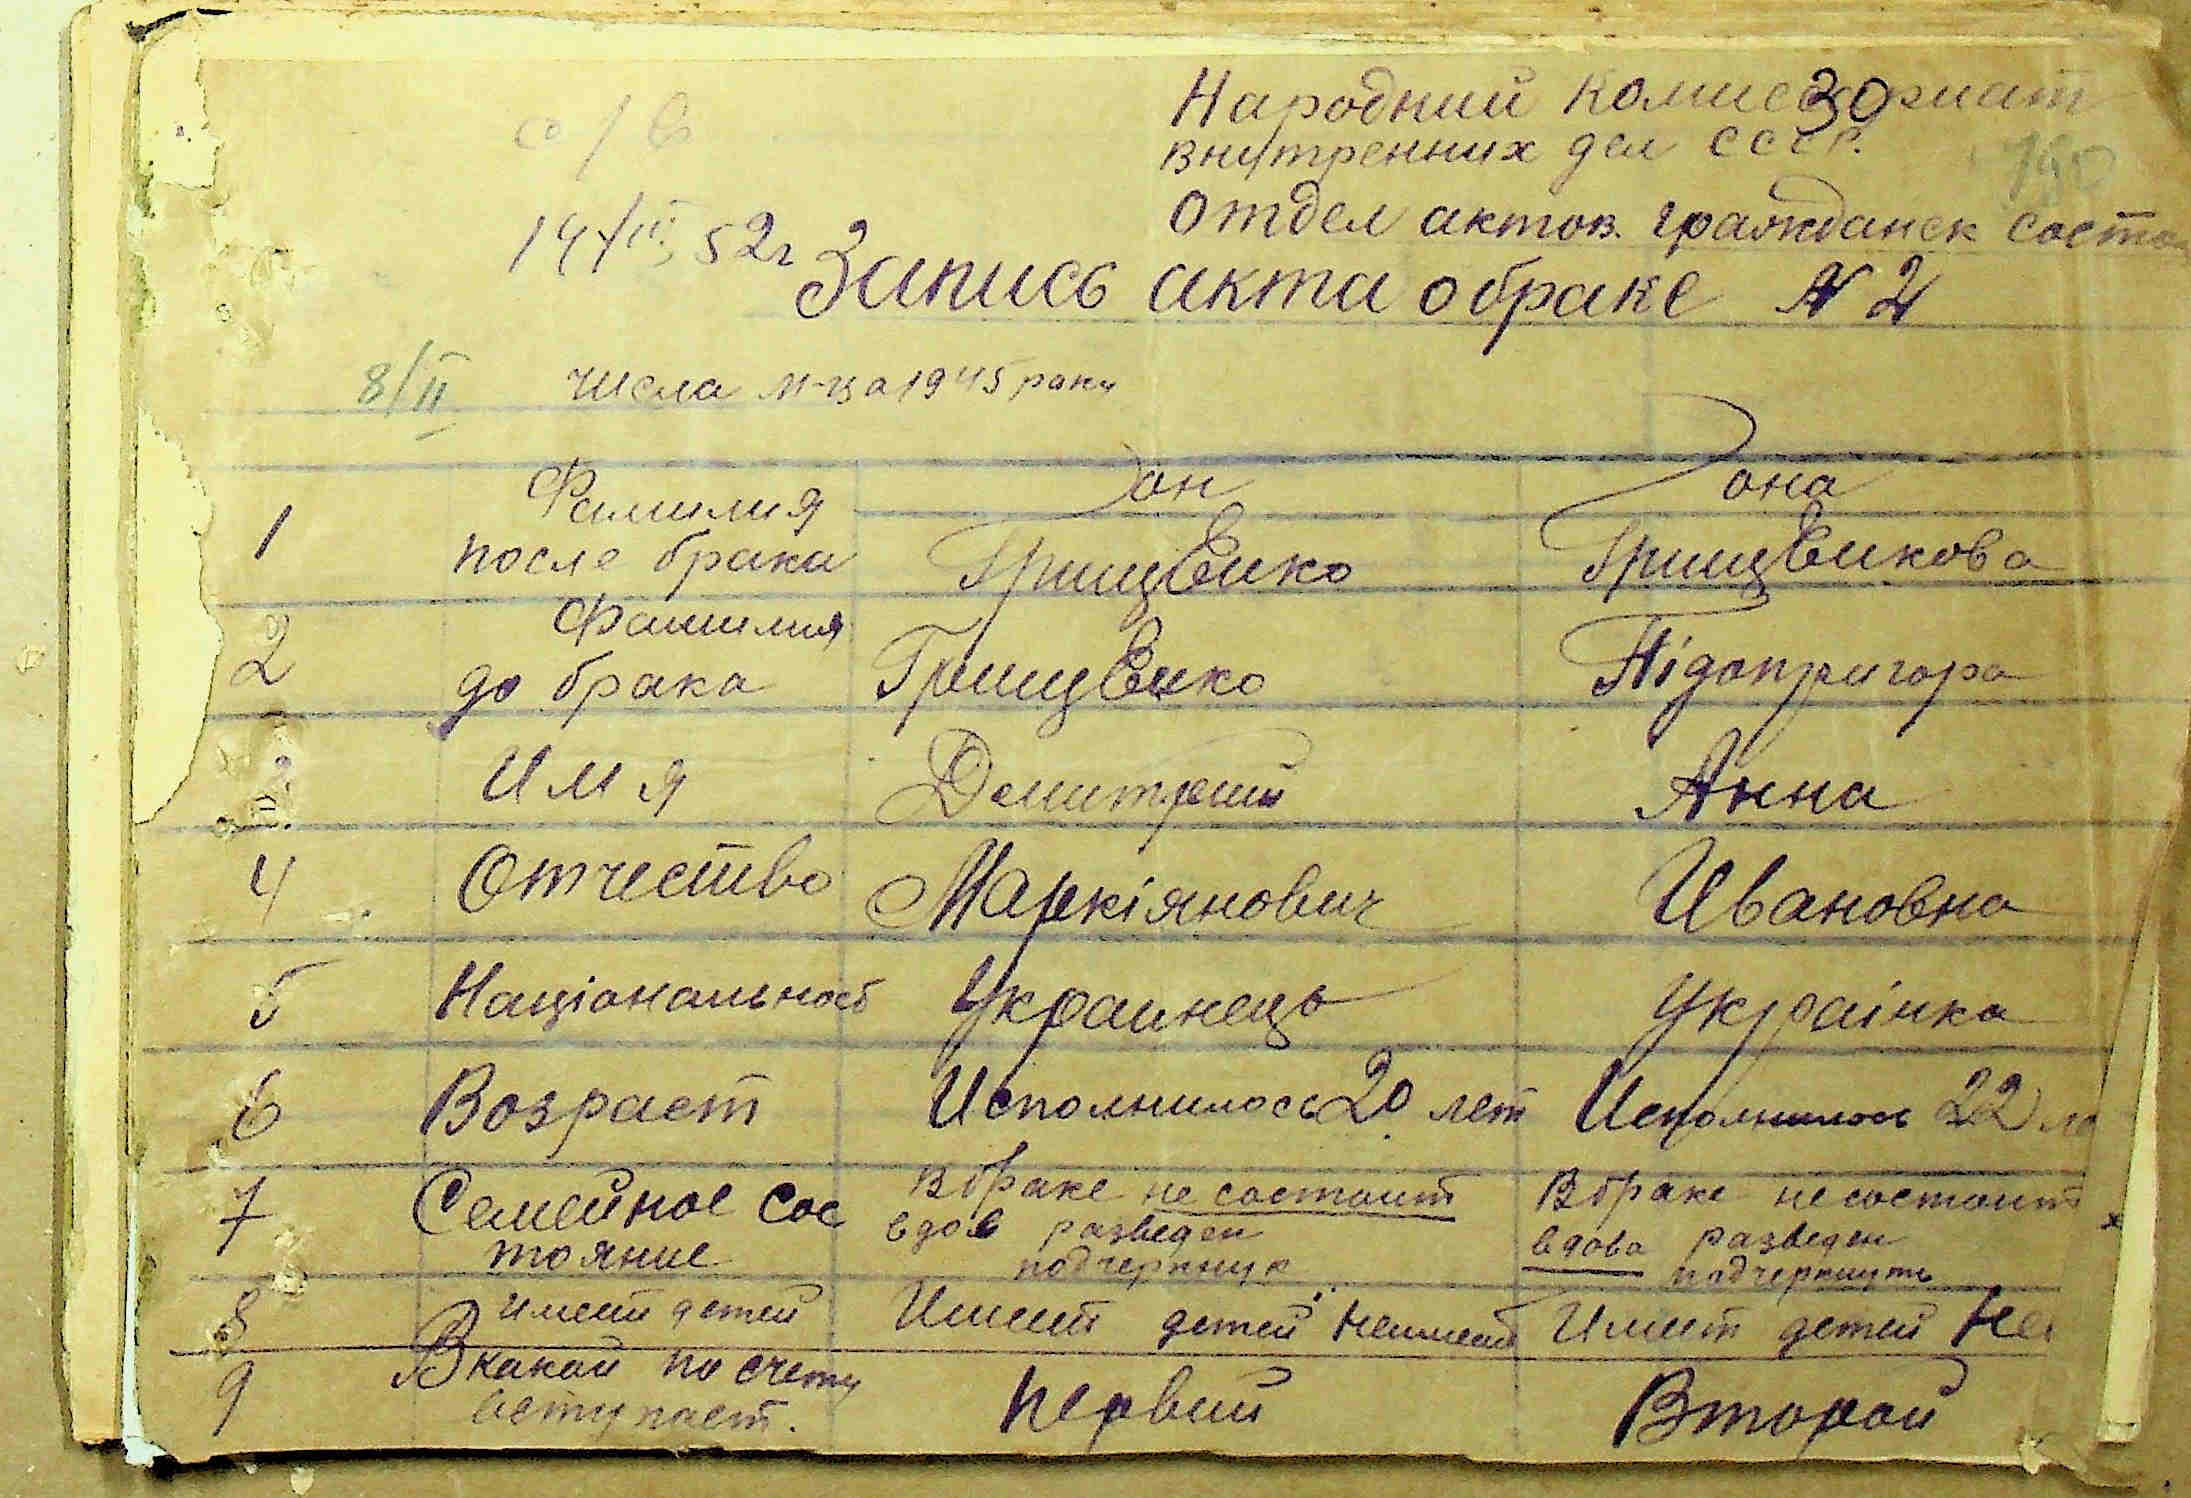 Народний Комисариат
30
внутренних дел СССР.
190
Отдел актов. гражданск состо
52г
Запись акта о браке № 2
8/II числа м-ца 1945 року
он она
1 Фамилия после брака Грищенко Грищенкова
2 Фамилия до брака Грищенко Підопригора
3 Имя Демитрий Анна
4 Отчество Маркіянович Ивановна
5 Національност Украинець Украінка
6 Возраст Исполнилось 20 лет Исполнилось 22 ле
7 Семейное сос В браке не состоит В браке не состоит
тояние вдов разведен вдова разведен
подчеркнук подчеркнуть
8 имеит детей Имеит детей неимеит Имеит детей Не
9 В какой по счету Первий Второй
вступает.